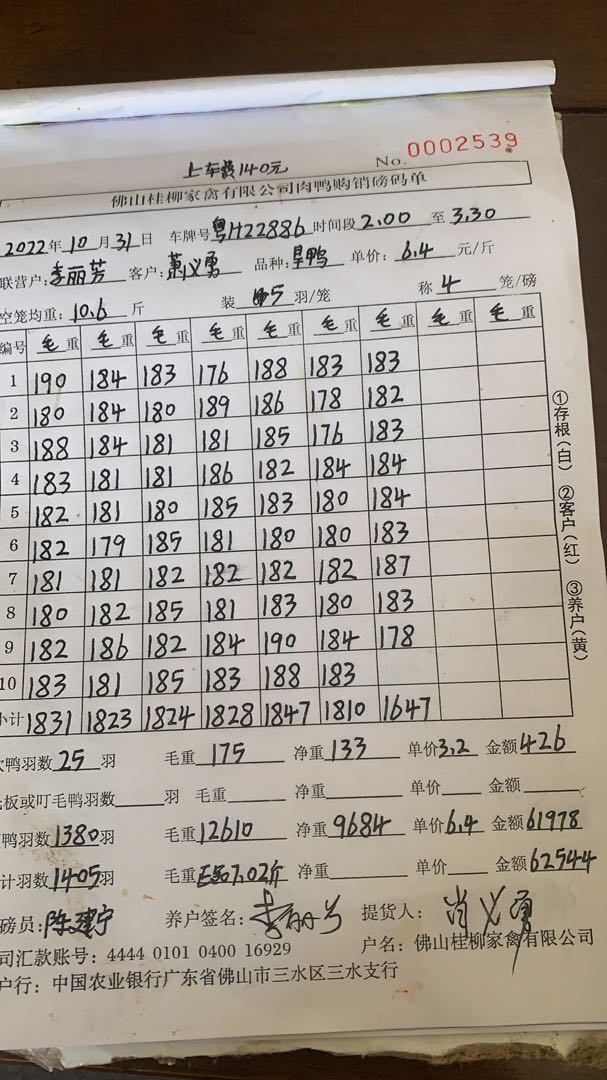 上车费140元
No. 0002539
佛山桂柳家禽有限公司肉鸭购销磅码单
2022年10月31日 车牌号粤H22886时间段2.00至3.30
联营户:李丽芳 客户:萧义勇 品种:旱鸭 单价:6.4元/斤
空笼均重:10.6斤 装5羽/笼 称4笼/磅
编号 毛重 毛重 毛重 毛重 毛重 毛重 毛重 毛重 毛重
1 190 184 183 176 188 183 183
2 180 184 180 189 186 178 182
3 188 184 181 181 185 176 183
4 183 181 181 186 182 184 184
5 182 181 180 185 183 180 184
6 182 179 185 181 180 180 183
7 181 181 182 182 182 182 187
8 180 182 185 181 183 180 183
9 182 186 182 184 190 184 178
10 183 181 185 183 188 183
小计 1831 1823 1824 1828 1847 1810 1647
①存根(白) ②客户(红) ③养户(黄)
鸭羽数25羽 毛重175 净重133 单价3.2 金额426
板或叮毛鸭羽数 羽 毛重 净重 单价 金额
鸭羽数1380羽 毛重12610 净重9684 单价6.4 金额61978
计羽数1405羽 毛重 7.02斤 净重 单价 金额62544
磅员:陈建宁 养户签名:李丽芳 提货人:肖义勇
司汇款账号:4444 0101 0400 16929 户名:佛山桂柳家禽有限公司
户行:中国农业银行广东省佛山市三水区三水支行